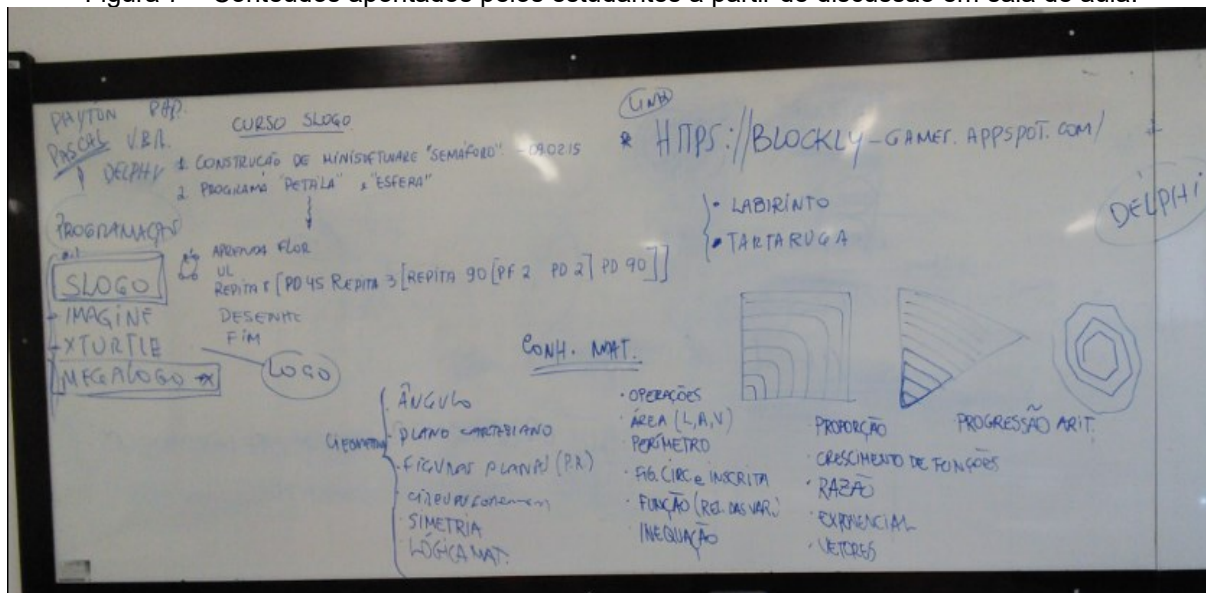 Figura 1 – Conteúdos apontados pelos estudantes a partir de discussão em sala de aula.
PAYTON PHP.
PASCAL V.B.
DELPHI
PROGRAMAÇÃO
SLOGO
- IMAGINE
- XTURTLE
MEGALOGO
LOGO
CURSO SLOGO
1. CONSTRUÇÃO DE MINISOFTWARE "SEMÁFORO" - 09.02.15
2. PROGRAMA "PETALA" e "ESFERA"
APRENDA FLOR
UL
REPITA 8 [PD 45 REPITA 3 [REPITA 90 [PF 2 PD 2] PD 90]]
DESENHE
FIM
LINK
* HTTPS://BLOCKLY-GAMES.APPSPOT.COM/
• LABIRINTO
• TARTARUGA
DELPHI
CONH. MAT.
GEOMETRIA
. ÂNGULO
. PLANO CARTESIANO
. FIGURAS PLANAS (P.R)
. SIMETRIA
. LÓGICA MAT.
• OPERAÇÕES
· ÁREA (L, A, V)
· PERÍMETRO
· FIG. CIRC e INSCRITA
· FUNÇÃO (REL. DAS VAR.)
INEQUAÇÃO
PROPORÇÃO
· CRESCIMENTO DE FUNÇÕES
· RAZÃO
· EXPONENCIAL
· VETORES
· PROGRESSÃO ARIT.